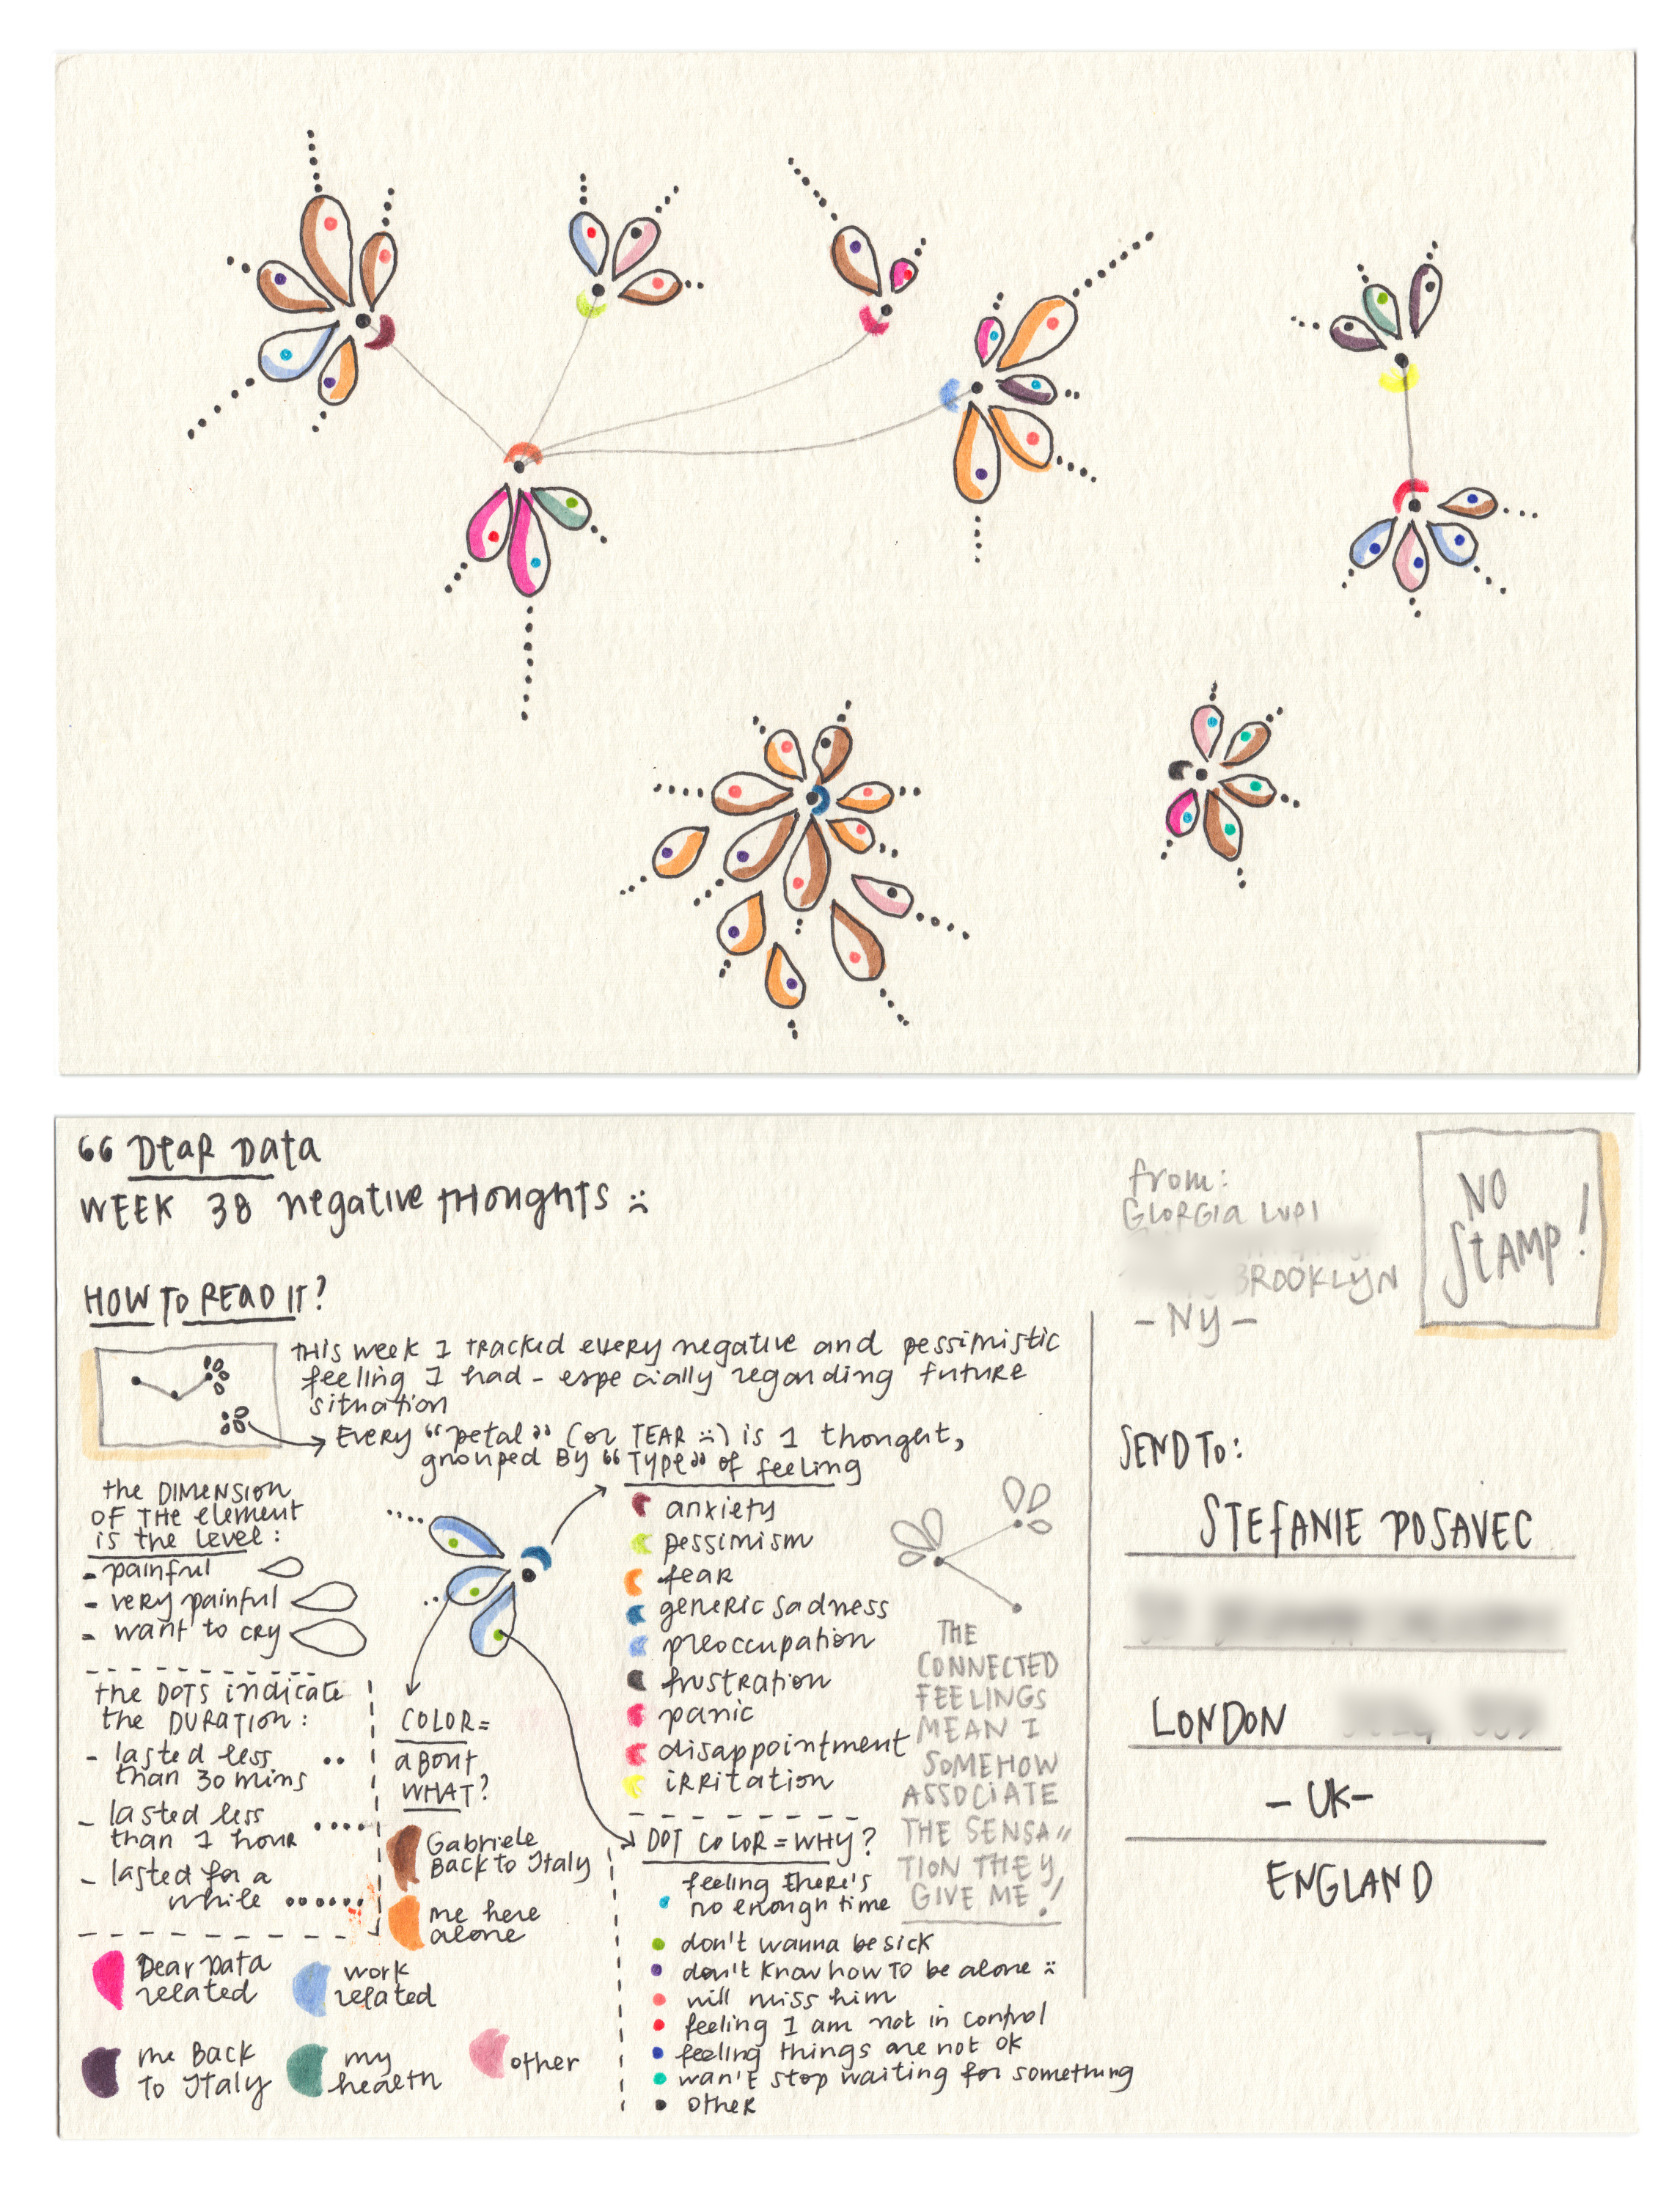 “ DEAR DATA
WEEK 38 negative thoughts :(
HOW TO READ IT?
this week I tracked every negative and pessimistic
feeling I had - especially regarding future
situation
Every “petal” (or TEAR :() is 1 thought,
grouped By “Type” of feeling
the DIMENSION
OF THE element
is the level:
- painful
- very painful
- want to cry
the DOTS indicate
the DURATION:
- lasted less
than 30 mins
- lasted less
than 1 hour
- lasted for a
while
COLOR=
ABOUT
WHAT?
Gabriele
Back to Italy
me here
alone
Dear Data
related
work
related
me Back
To Italy
my
health
other
anxiety
pessimism
fear
generic sadness
preoccupation
frustration
panic
disappointment
irritation
DOT COLOR = WHY?
feeling there's
no enough time
don't wanna be sick
don't know how to be alone :(
will miss him
feeling I am not in control
feeling things are not ok
wan't stop waiting for something
other
THE
CONNECTED
FEELINGS
MEAN I
SOMEHOW
ASSOCIATE
THE SENSA
TION THEY
GIVE ME!
from:
GIORGIA LUPI
BROOKLYN
- NY -
NO
STAMP!
SEND TO:
STEFANIE POSAVEC
LONDON
- UK -
ENGLAND